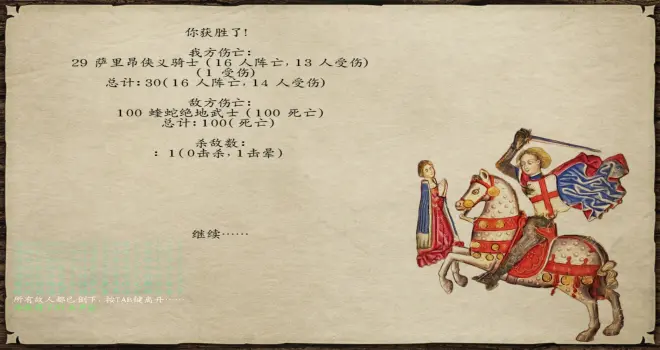 你获胜了!
我方伤亡:
29 萨里昂侠义骑士 (16 人阵亡, 13 人受伤)
(1 受伤)
总计: 30(16 人阵亡, 14 人受伤)
敌方伤亡:
100 蝰蛇绝地武士 (100 死亡)
总计: 100(死亡)
杀敌数:
: 1(0击杀, 1击晕)
继续……
所有敌人都已倒下, 按TAB键离开……